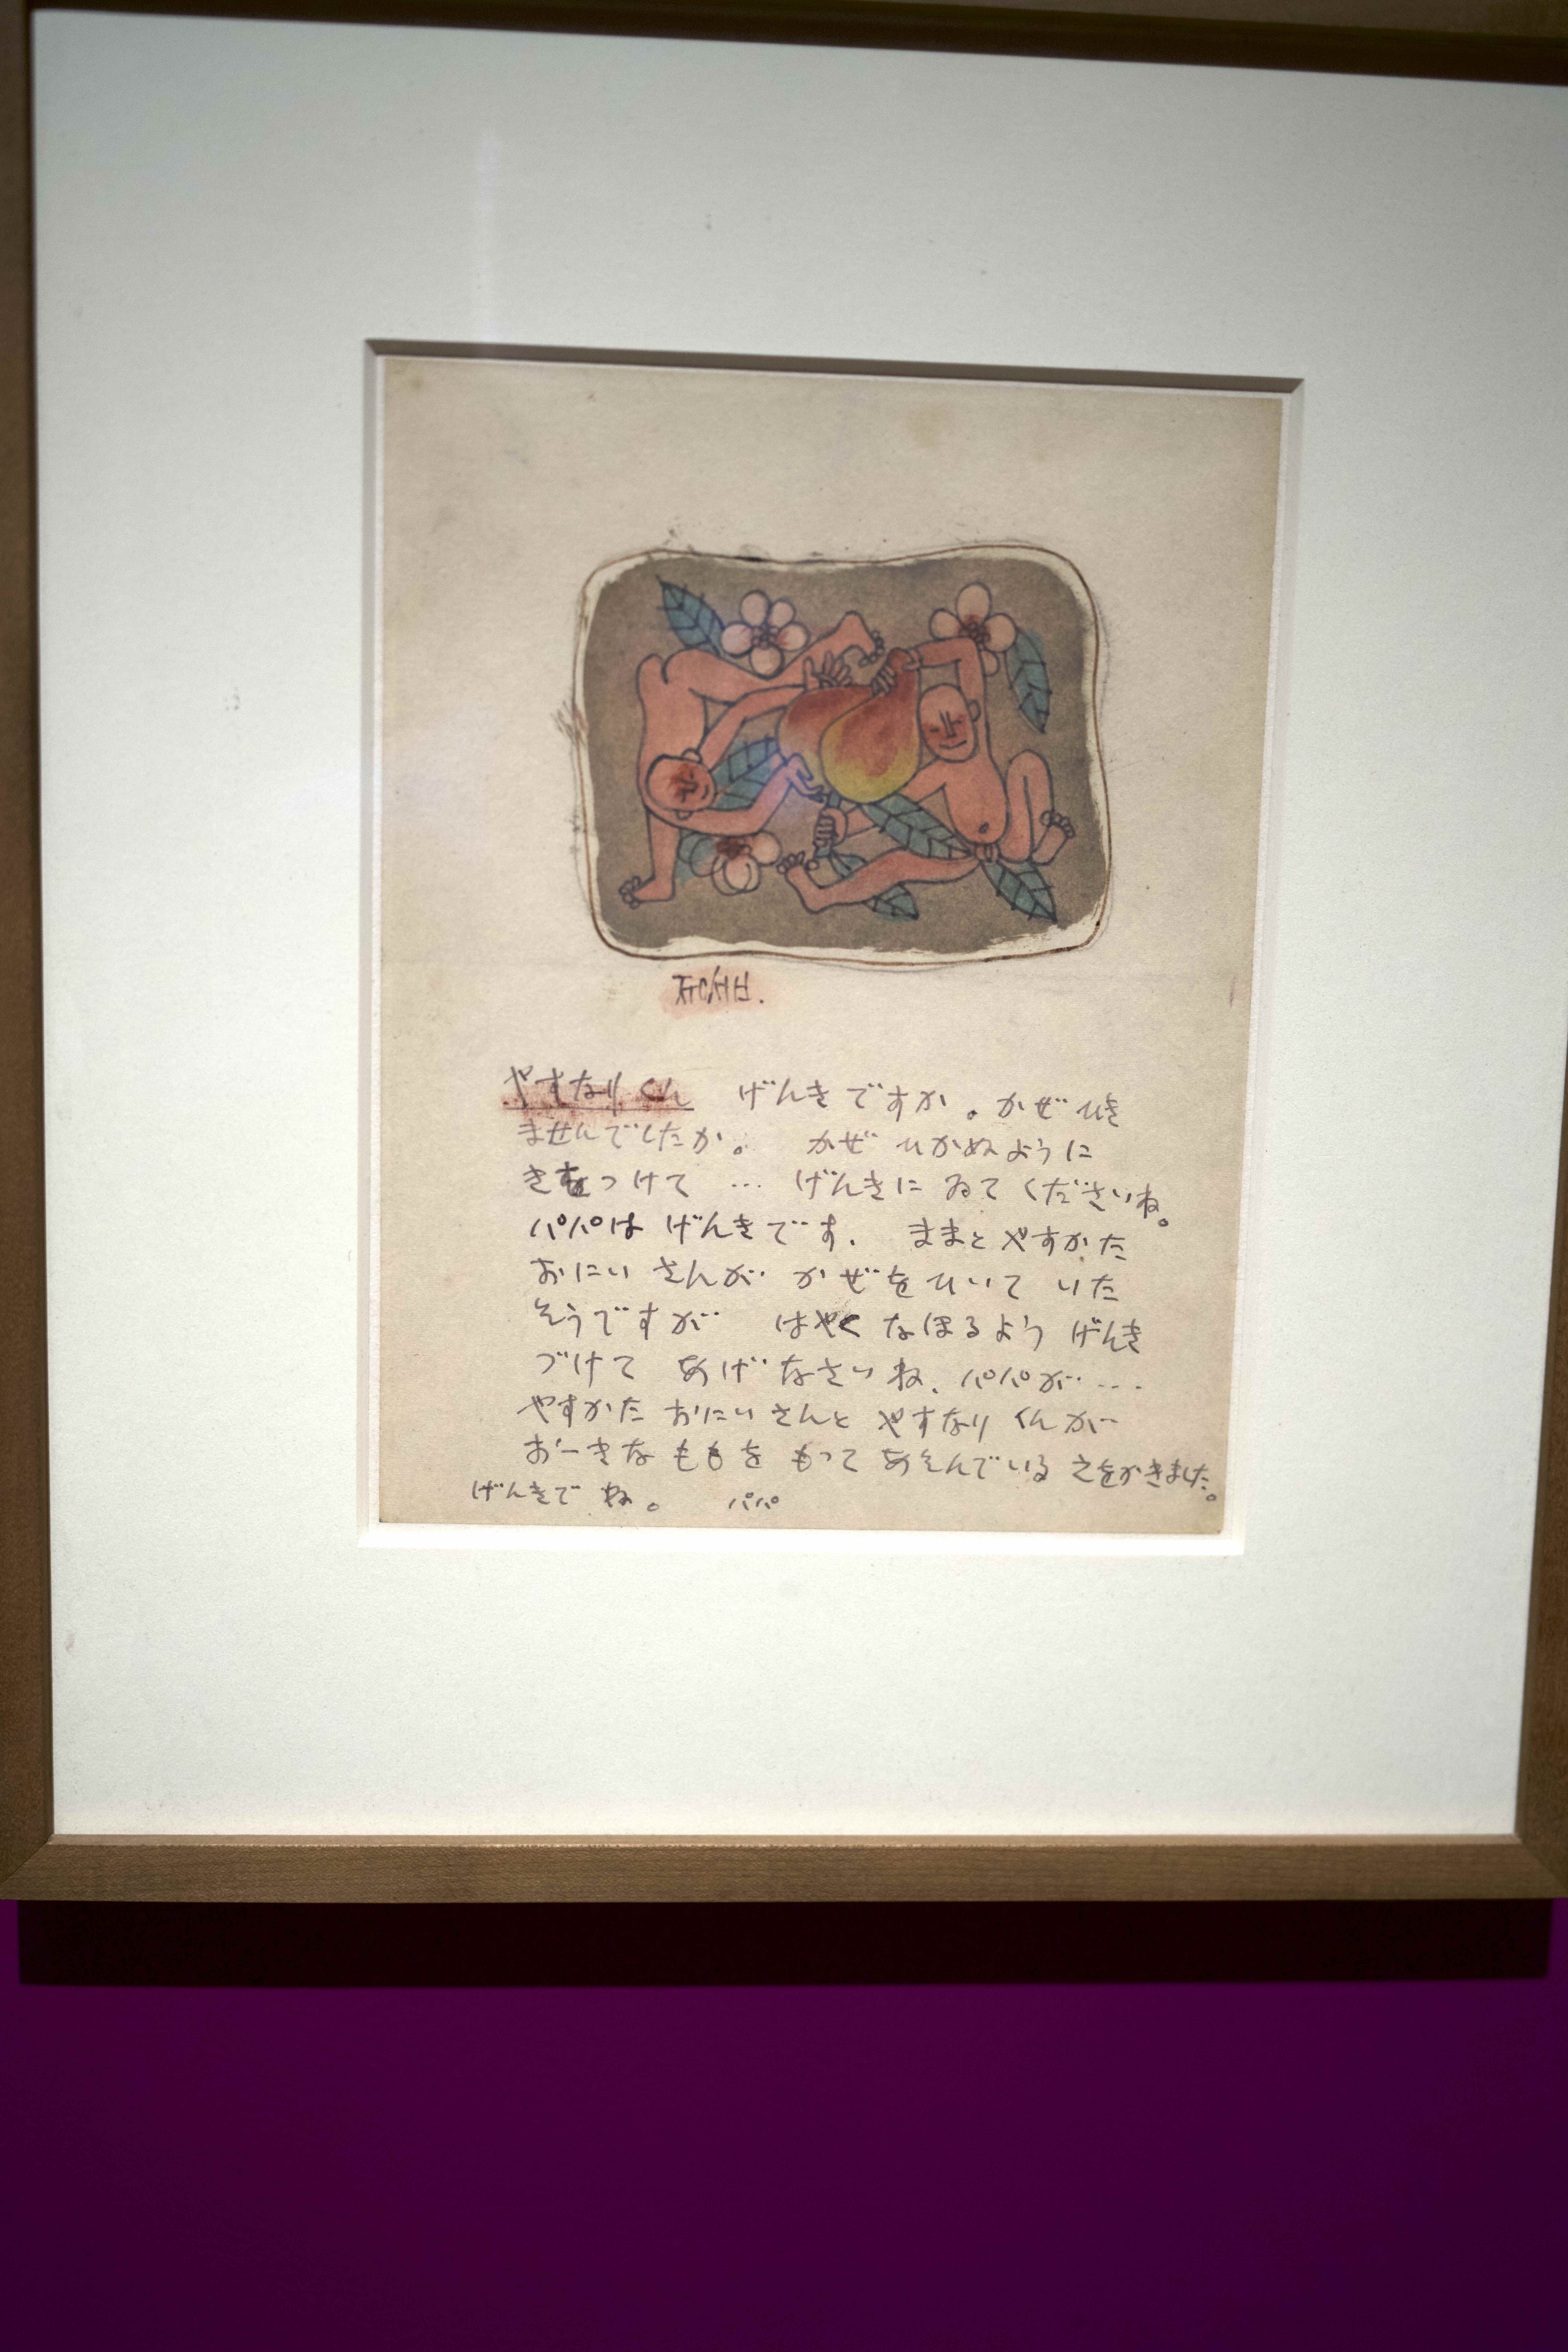 ㅈㅜㅇㅅㅓㅂ.
やすなりくん げんきですか。かぜ ひき
ませんでしたか。 かぜ ひかぬように
きをつけて … げんきに ゐて くださいね。
パパは げんきです. ままと やすかた
おにい さんが かぜをひいて いた
そうですが はやく なほるよう げんき
づけて あげ なさい ね、パパが…
やすかた おにい さんと やすなり くんが
おーきな ももを もって あそんでいる えをかきました。
げんきで ね。 パパ